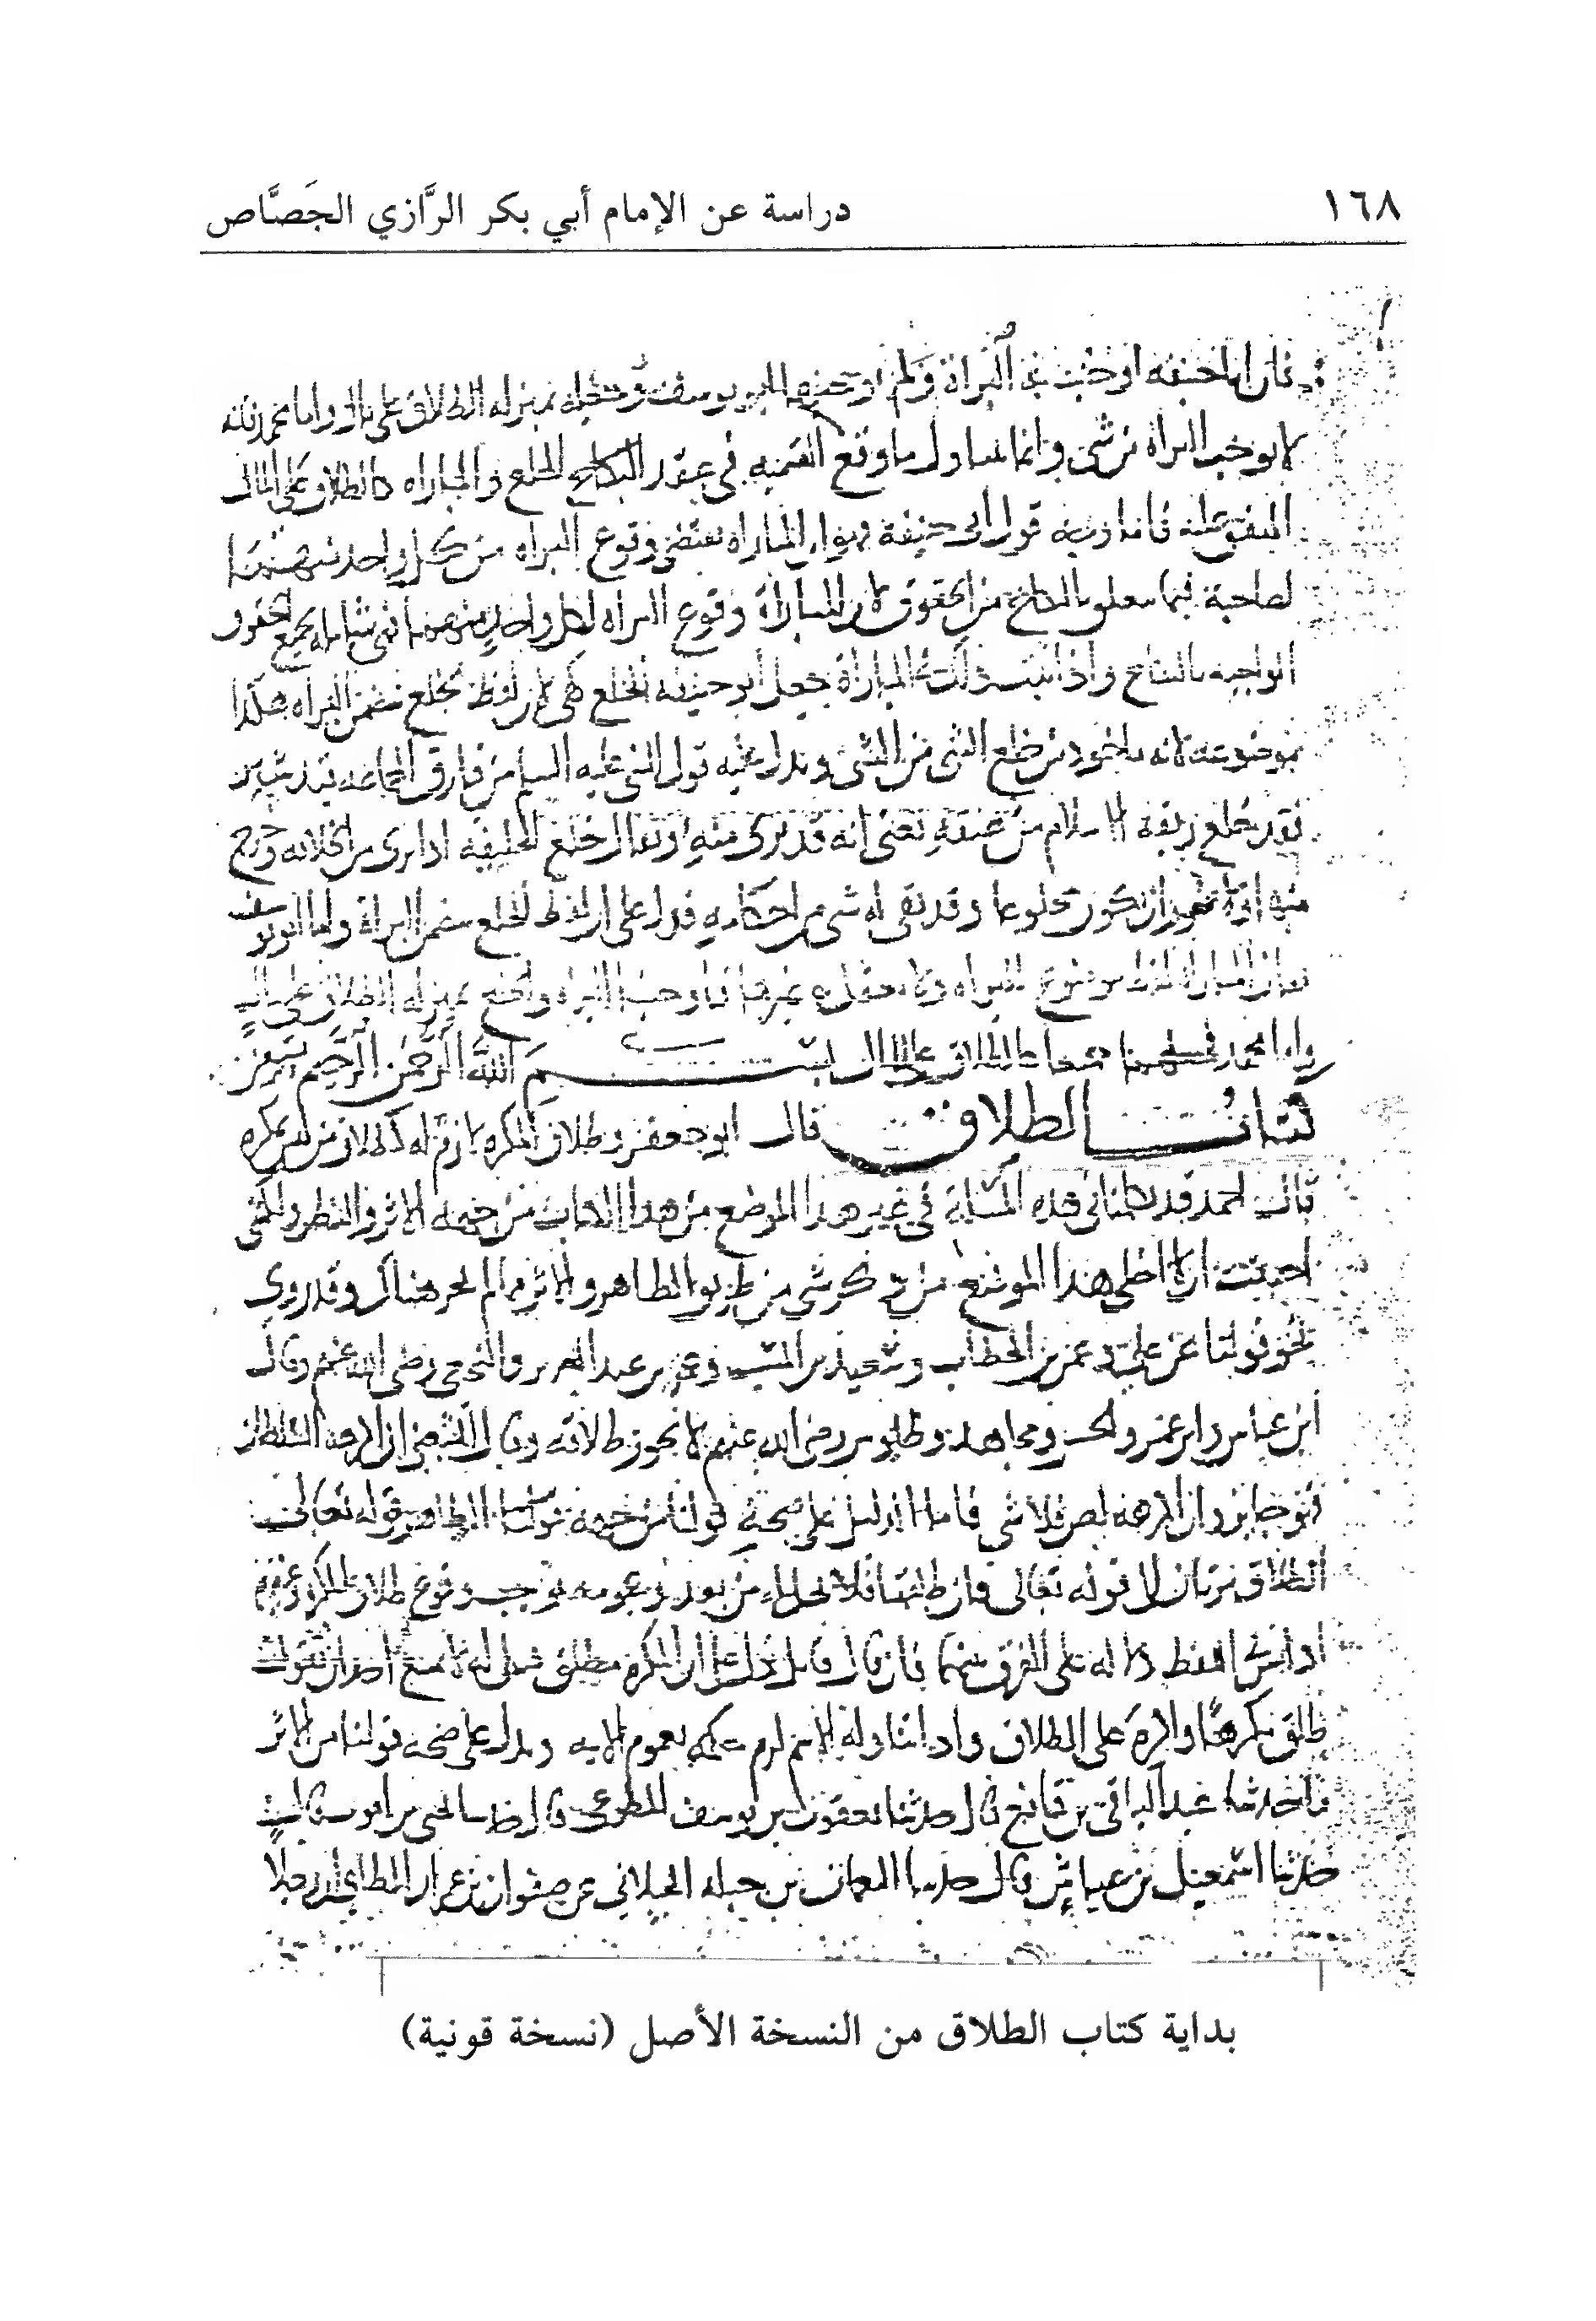 ١٦٨
دراسة عن الإمام أبي بكر الرَّازي الجَصَّاص
فان ابا حنيفة اوجبت بها البراة ولم يوجبها ابو يوسف وجعله بمنزله الطلاق على مال واما محمد فانه
لا يوجب البراه من شي وانما يتناول ما وقع التسميه في عقد النكاح الخلع والمباراه كالطلاق على المال
المتفق عليه فاما وجه قول ابي حنيفة فهو ان المباراه تقتضي وقوع البراه من كل واحد منهما
لصاحبة فيما يتعلق بالنكاح من الحقوق لان المباراة وقوع البراه لكل واحد منهما فهي شامله لجميع الحقوق
الواجبه بالنكاح واذا ثبت ذلك في المباراة جعل ابو حنيفه الخلع هي لان لفظ الخلع تضمن البراه هكذا
موضوعه لانه ماخوذ من خلع الشي من الشي ويدل عليه قول النبي عليه السلام من فارق الجماعه قيد شبر
فقد خلع ربقة الاسلام من عنقه يعنى انه قد بري منه وتقول خلع الخليفه اذا بري من الخلافه وخرج
منها ولا يجوز ان يكون مخلوعا وقد بقي له شي من احكامه فدل على ان لفظ الخلع يتضمن البراة واما ابو يوسف
واما محمد كالطلاق على المال بسم الله الرحمن الرحيم
كتاب الطلاق قال ابو جعفر وطلاق المكره لازم له كطلاق من ليس بمكره
قال احمد قد تكلمنا في هذه المسئلة في غير هذا الموضع من هذا الكتاب من جهة الاثر والنظر ولكني
احببت ان لا اخلي هذا الموضع من ذكر شي من طريق الظاهر والاثر مما لم يجر هناك وقد روي
نحو قولنا عن علي وعمر بن الخطاب وسعيد بن المسيب وعمر بن عبد العزيز والنخعي رضي الله عنهم وقال
ابن عباس وابن عمر والحسن ومجاهد وطاوس رضي الله عنهم لا يجوز طلاقه وقال الشعبي ان اكرهه السلطان
فهو جايز وان اكرهه لص فلا شي فاما الدليل على صحة قولنا من جهة الظاهر قوله تعالى
الطلاق مرتان الى قوله تعالى فان طلقها فلا تحل له من بعد وعمومه يوجب وقوع طلاق المكره وغيره
اذ ليس في اللفظ دلاله على الفرق بينهما فان قال قايل دل على ان المكره مطلق قيل له لا يمنع احد ان يقول
طلق مكرها واكره على الطلاق واذا تناوله الاسم لزم حكمه بعموم الايه ويدل على صحه قولنا من الاثر
ما حدثنا عبد الباقي بن قانع قال حدثنا يعقوب بن يوسف المطوعي قال حدثنا يحيى بن ايوب قال
حدثنا اسمعيل بن عياش قال حدثنا الغاز بن جبله الجبلاني عن صفوان بن عمران الطائي ان رجلا
بداية كتاب الطلاق من النسخة الأصل (نسخة قونية)